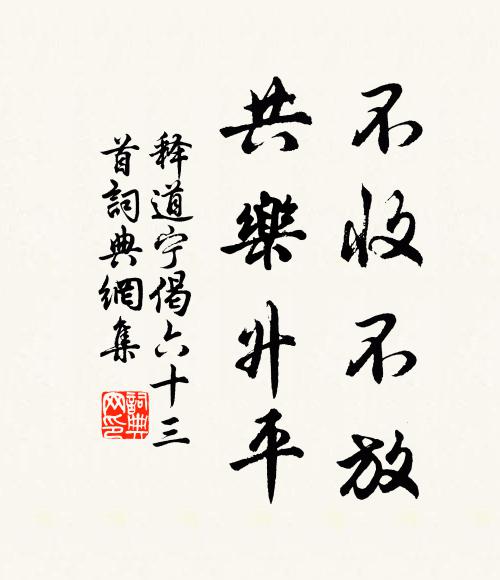 不收不放
共樂升平
释道宁偈六十三
首詞典網集
詞典
网印